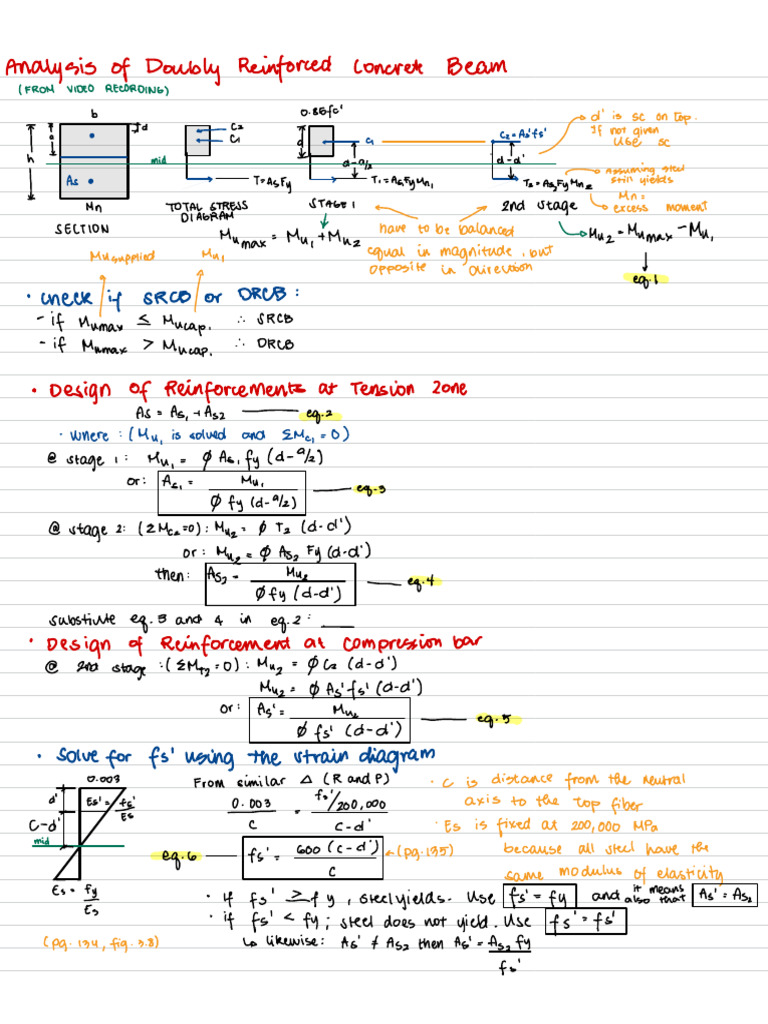 Analysis of Doubly Reinforced Concrete Beam
(FROM VIDEO RECORDING)
b
d
a
h
mid
As
Mn
SECTION
C2
C1
T=AsFy
TOTAL STRESS
DIAGRAM
0.85fc'
a
C1
d-a/2
T1=AsFyMn1
STAGE 1
C2=As'fs'
d-d'
T2=As2FyMn2
2nd stage
d' is sc on top.
If not given
use sc
Assuming steel
still yields
Mn=
excess moment
Mumax = Mu1 + Mu2
have to be balanced
equal in magnitude, but
opposite in direction
Mu2 = Mumax - Mu1
eq.1
Musupplied
Mu1
• check if SRCB or DRCB:
- if Mumax ≤ Mucap. ∴ SRCB
- if Mumax > Mucap. ∴ DRCB
• Design of Reinforcements at Tension Zone
As = As1 + As2 eq.2
• where: (Mu1 is solved and ΣMc1=0)
@ stage 1: Mu1 = ∅ As1 fy (d-a/2)
or: As1 = Mu1 / ∅ fy (d-a/2) eq.3
@ stage 2: (ΣMc2=0): Mu2 = ∅ T2 (d-d')
or: Mu2 = ∅ As2 Fy (d-d')
then: As2 = Mu2 / ∅ fy (d-d') eq.4
substiute eq.3 and 4 in eq.2: ___
• Design of Reinforcement at compression bar
@ 2nd stage: (ΣMT2=0): Mu2 = ∅ C2 (d-d')
Mu2 = ∅ As' fs' (d-d')
or: As' = Mu2 / ∅ fs' (d-d') eq.5
• Solve for fs' using the strain diagram
0.003
d'
Es' = fs'/Es
C-d'
mid
Es = fy/Es
(pg. 134, fig. 3.8)
From similar △ (R and P)
0.003 / c = fs'/200,000 / c-d'
eq.6 fs' = 600 (c-d') / c (pg.135)
• C is distance from the neutral
axis to the top fiber
• Es is fixed at 200,000 MPa
because all steel have the
same modulus of elasticity
• If fs' ≥ fy, steel yields. Use fs' = fy and it means also that As' = As2
• if fs' < fy; steel does not yield. Use fs' = fs'
↳ likewise: As' ≠ As2 then As' = As2 fy / fs'